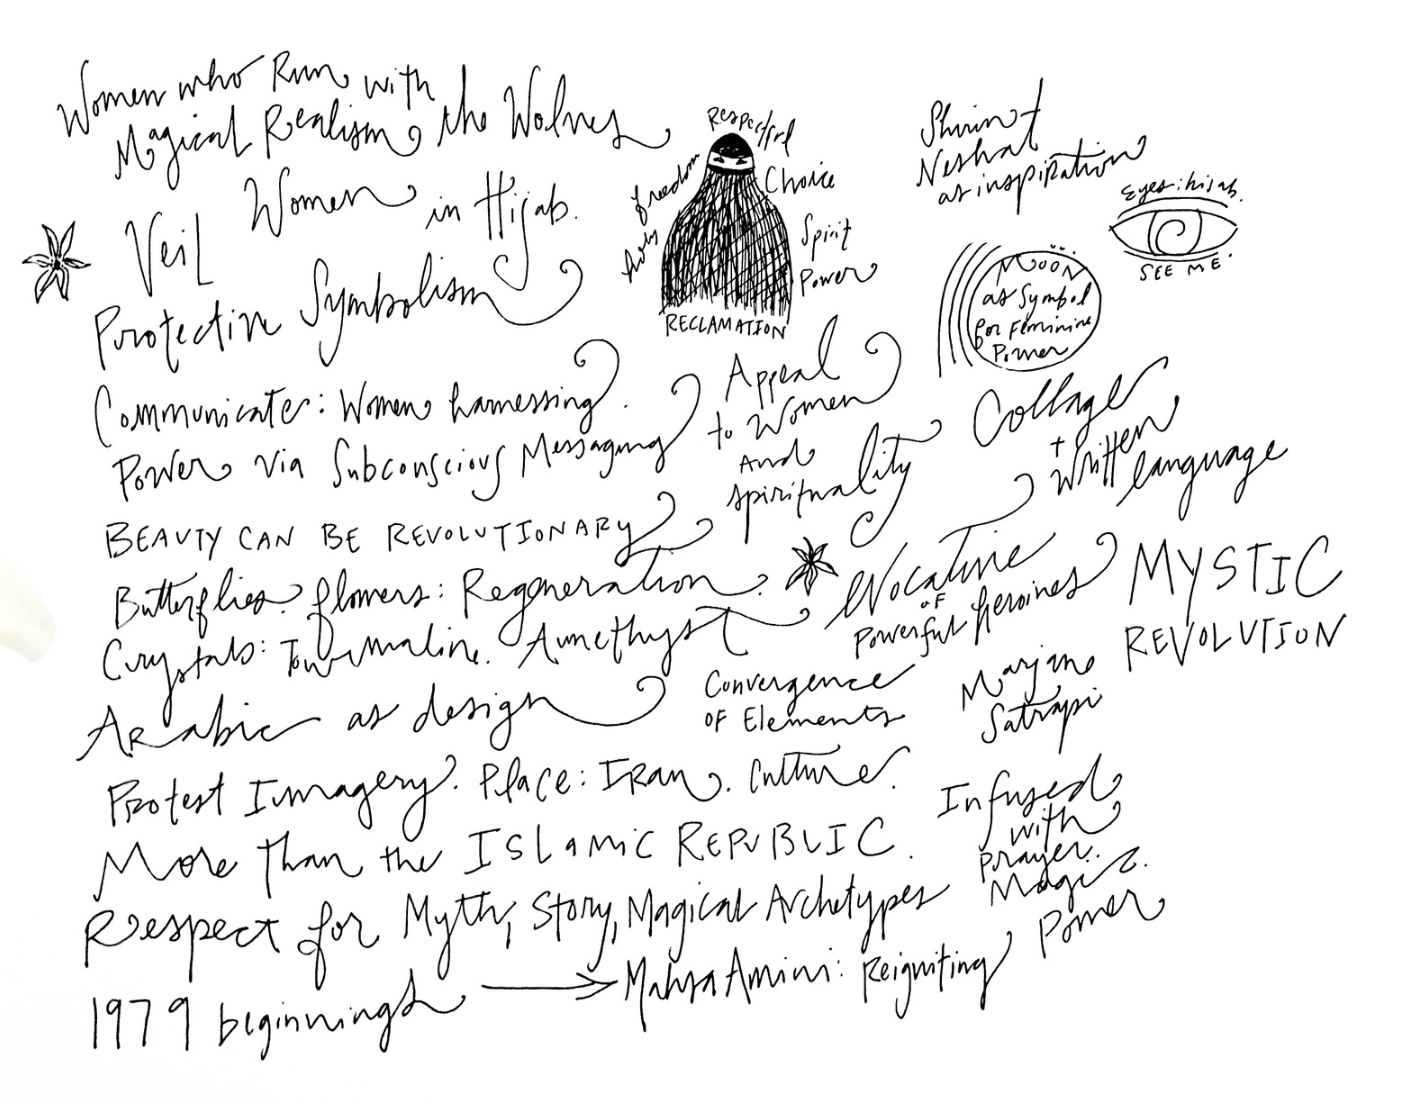 Women who Run with
Magical Realism the Wolves
Women in Hijab.
Veil
Protective Symbolism
Respectful
freedom
Choice
holy
Spirit
Power
RECLAMATION
Shirin
Neshat
as inspiration
Eyes: hijab.
SEE ME.
Moon
as Symbol
for Feminine
Power
Communicate: Women harnessing
Power via Subconscious Messaging
Appeal
to Women
And
Spirituality
Collage
+ Written
language
BEAUTY CAN BE REVOLUTIONARY
Butterflies. flowers: Regeneration.
Crystals: Tourmaline. Amethyst
Evocative
OF
Powerful Heroines
MYSTIC
REVOLUTION
Arabic as design
Convergence
OF Elements
Marjane
Satrapi
Protest Imagery. Place: IRAN. Culture.
More Than the ISLAMIC REPUBLIC.
Infused
with
prayer.
Magic.
Power
Respect for Myth, Story, Magical Archetypes
1979 beginnings → Mahsa Amini: Reigniting